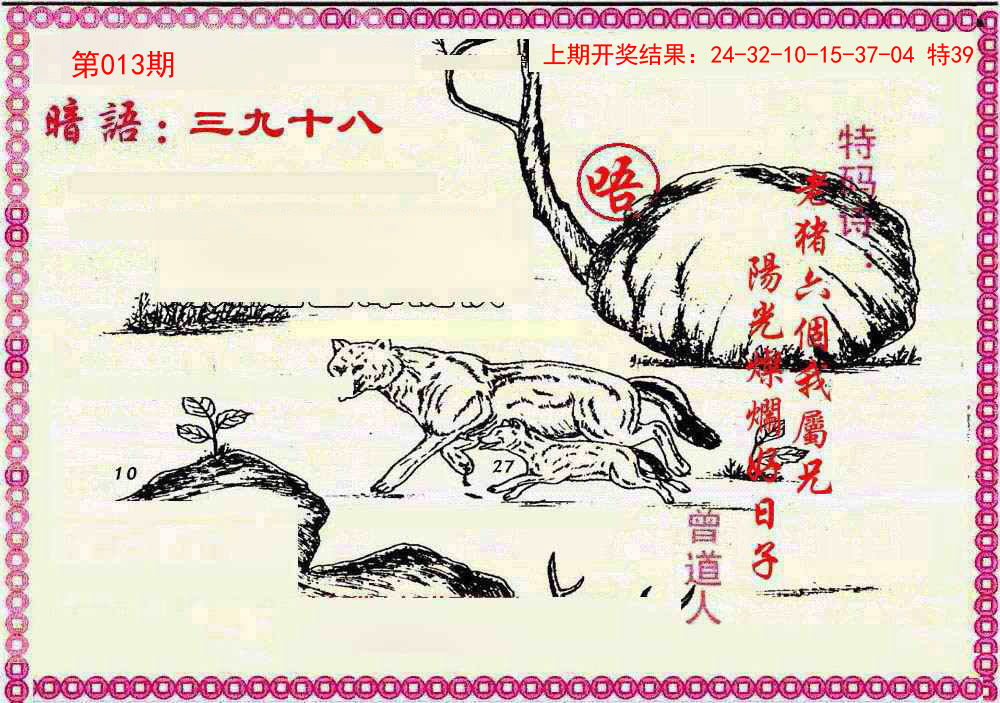 第013期
上期开奖结果：24-32-10-15-37-04 特39
暗語：三九十八
唔
特码诗：
老猪六個我屬兄
陽光燦爛好日子
10
27
曾道人